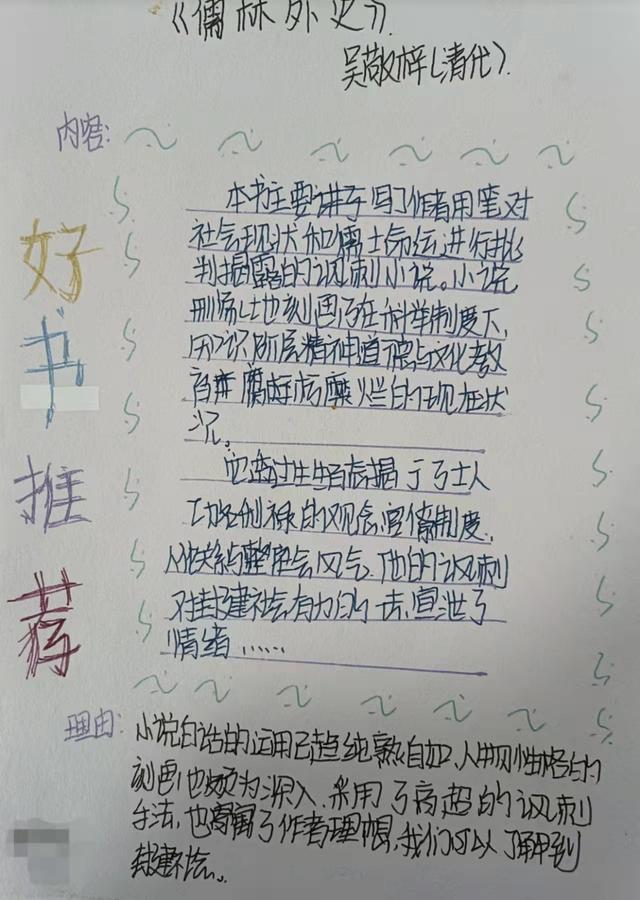 《儒林外史》.
吴敬梓(清代).
内容:
好书推荐
本书主要讲了写了作者用笔对
社会现状和儒士命运进行批
判揭露的讽刺小说。小说
刻画了在科举制度下,
知识阶层精神道德与文化教
腐朽糜烂的现在状
况。
它透过生活揭了士人
功名利禄的观念,官僚制度,
人伦关系与整社会风气.他的讽刺
对封建社会有力的一击,宣泄了
情绪……
理由:
小说白话的运用已趋纯熟自如,人物性格的
刻画也颇为深入.采用了高超的讽刺
手法,也寓了作者理想,我们可以了解到
封建社会。